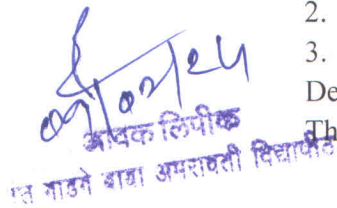 2.
3.
De
Th
आवक लिपीक
त गाडगे बाबा अमरावती विद्यापीठ